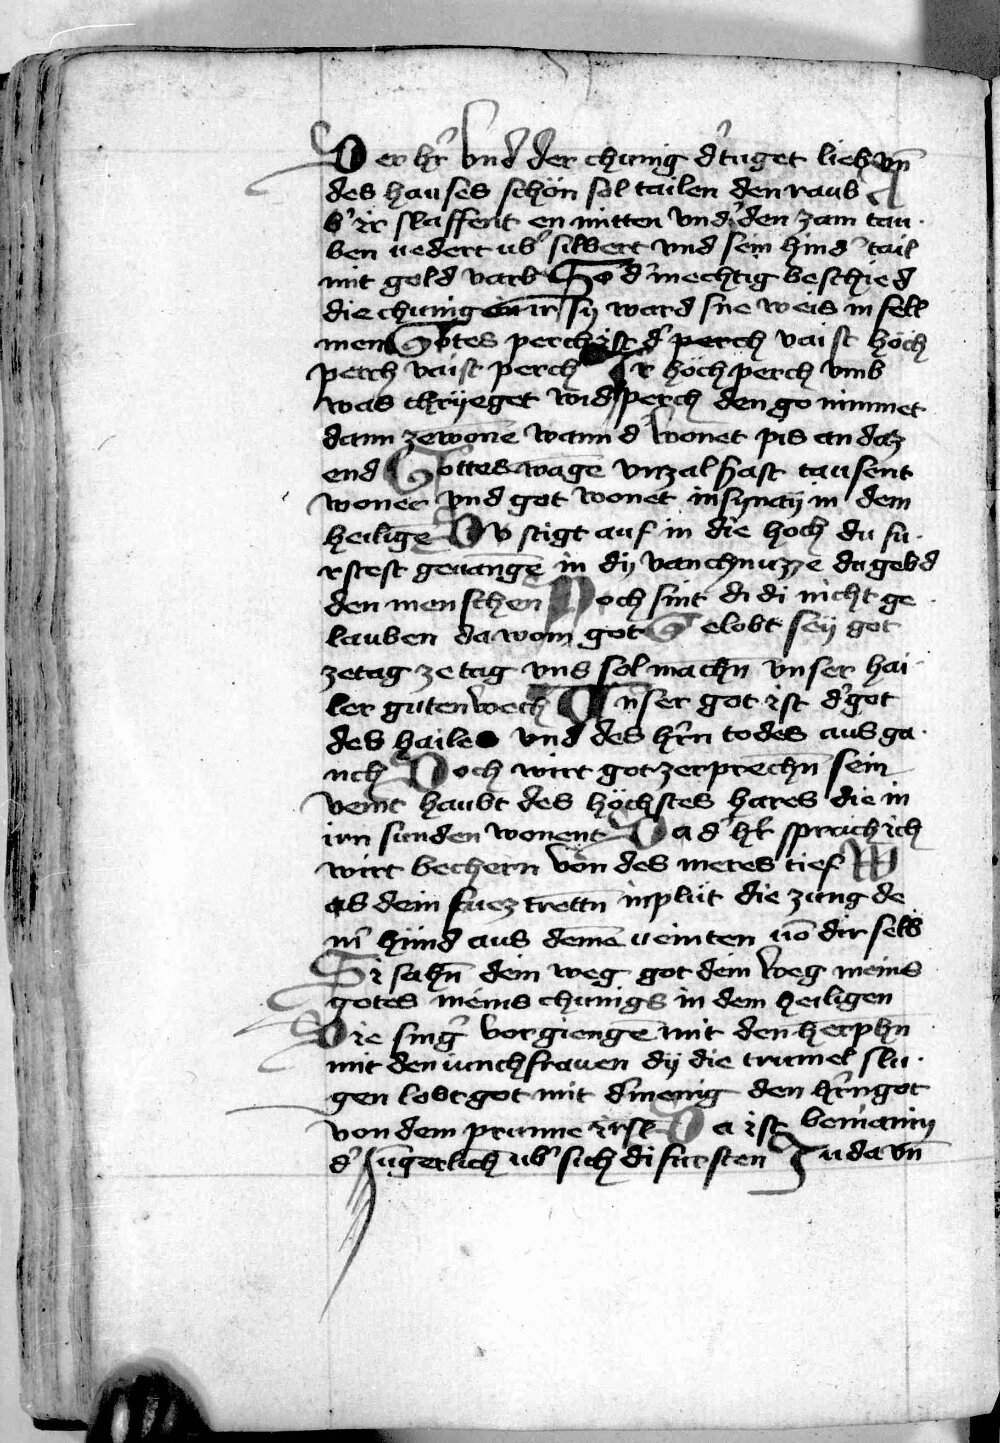 Der hr̄ vnd der chunig d᾽tuget lieb vn̄
des hauses schön sol tailen den raub A
b᾽ ir slaffent en mitten vnd᾽ den zam tau
ben uedert ub᾽ silbert vnd sein hind᾽ tail
mit gold varb So d᾽ mechtig beschied
die chunig ir sy ward sne weis in sell
men Gotes perch ist d᾽ perch vaist höch
perch vaist perch Ir höch perch vmb
was chryeget wid᾽ perch den go nimmet
dann zewone᷑ wann d᾽ wonet pis an daz
end Gottes wage᷑ vnzalhast tausent
woner vnd got wonet in synay in dem
heilige᷑ Dv stigt auf in die hoch du fu
rstest geuange᷑ in dy vanchnuzze du gebd
den menschen Noch sint di di nicht ge
lauben da wom got Gelobt sey got
zetag ze tag vns sol machn̄ vnser hai
ler guten wech Vnser got ist d᾽ got
des haile vnd des hr̄n todes ausga
nch Doch wirt got zerprechn̄ sein
veint haubt des höchstes hares die in
irn sunden wonent Da d᾽ hr̄ sprach ich
wirt bechern von des meres tief W
as dein fuez trettn̄ in plut die zung de
in᷑ hund aus deme᷑ ueinten uo᷑ dir selb
Si sahn̄ dein weg got dein weg meins
gotes meins chunigs in dem heiligen
Die sing᾽ vorgienge᷑ mit den herphn̄
mit den iunchfrauen dy die trumel slu
gen lobt got mit d᾽ menig den hr̄n got
von dem prunne irsl Da ist beniamin
d᾽ Jungerlich ub᾽ sich di fursten Juda vn̄